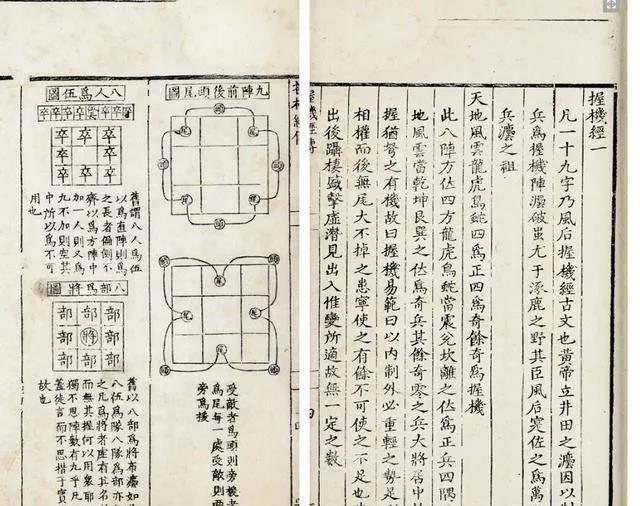 握機經一
凡一十九字乃風后握機經古文也黃帝立井田之灋因以制
兵爲握機陣灋破蚩尤于涿鹿之野其臣風后寔佐之爲萬
兵灋之祖
天地風雲龍虎鳥蛇四爲正四爲奇餘奇爲握機
此八陣方位四方龍虎鳥蛇當震兌坎離之位爲正兵四隅
地風雲當乾坤艮巽之位爲奇兵其餘奇零之兵大將居中
握猶弩之有機故曰握機易範曰以內制外必重輕之勢足
相權而後無尾大不掉之患寧使之有餘不可使之不足也
出後躡棲盛擊虛潛見出入惟變所適故無一定之數
握機經傳
九陣前後頭尾圖
受敵者爲頭則旁援者
爲尾每一處受敵則兩
旁爲援
八人爲伍圖
卒卒卒卒卒卒卒
卒卒卒
卒卒
卒卒卒
舊謂八人爲伍
以爲直陣則爲
之長者偏側不
齊以爲方陣中
加一人則又爲
九不加則空其
中所以爲不可
用也
八部爲將圖
部部部
部將部
部部部
舊以八部爲將布灋如
八伍爲隊八隊爲部亦
之凡爲將者虛有其名
而無其握何以用衆耶
獨不思陣數有九乎凡
蓋徒言而不思措于實
故也